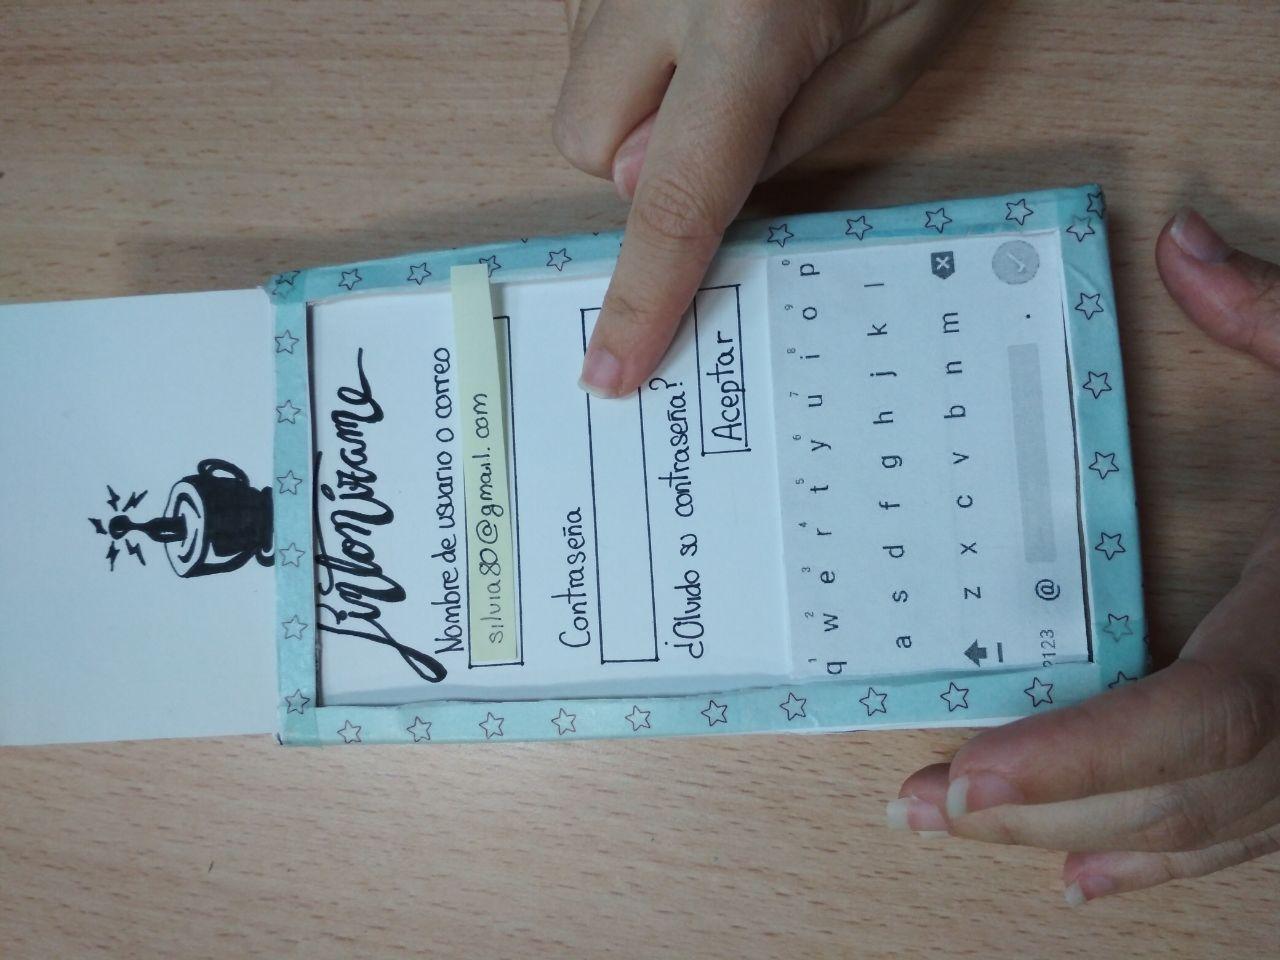 Sintonízame
Nombre de usuario o correo
silvia80@gmail.com
Contraseña
¿Olvido su contraseña?
Aceptar
1 2 3 4 5 6 7 8 9 0
q w e r t y u i o p
a s d f g h j k l
z x c v b n m
?123 @ .